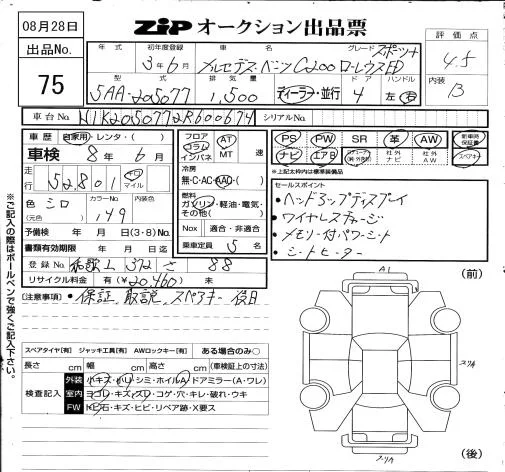 08月28日
ZIP オークション出品票
出品No.
75
年式 初年度登録 車名 グレード 評価点
3年6月 メルセデスベンツ C200 ローレウス スポーツ 4.5
型式 排気量 ドア ハンドル 内装
5AA-205077 1,500 ディーラー・並行 4 左・右 B
車台No. W1K2050772R600674 シリアルNo.
車歴 自家用・レンタ・( )
フロア コラム インパネ AT MT 速
PS PW SR 革 AW 新車時保証書
車検 8年6月
ナビ エアB 社外ナビ 社外AW スペアキー
※上記太枠内は標準装備品
走行 52,801 キロ マイル
冷房 無・C・AC・AAC・( )
セールスポイント
・ヘッドアップディスプレイ
色 シロ (元色) カラーNo. 149 内装色
燃料 ガソリン・軽油・電気・その他( )
・ワイヤレスチャージ
予備検 年 月 日(3・8)No.
Nox 適合・非適合
・メモリー付パワーシート
書類有効期限 年 月 日迄
乗車定員 5名
・シートヒーター
登録No. 和歌山 372 さ 88
リサイクル料金 有(¥20,460) 未
(注意事項) ・保証、取説、スペアキー 後日
※ご記入の際はボールペンで強くご記入下さい。
スペアタイヤ[有] ジャッキ工具[有] AWロックキー[有] ある場合のみ○
長さ cm 幅 cm 高さ cm (車検証上の寸法)
検査記入
外装 小キズ・小凹・シミ・ホイルA・ドアミラー(A・ワレ)
室内 ヨゴレ・キズ・スレ・コゲ・穴・キレ・破れ・ウキ
FW トビ石・キズ・ヒビ・リペア跡・X要ス
(前)
A1
スリA
スリA
(後)